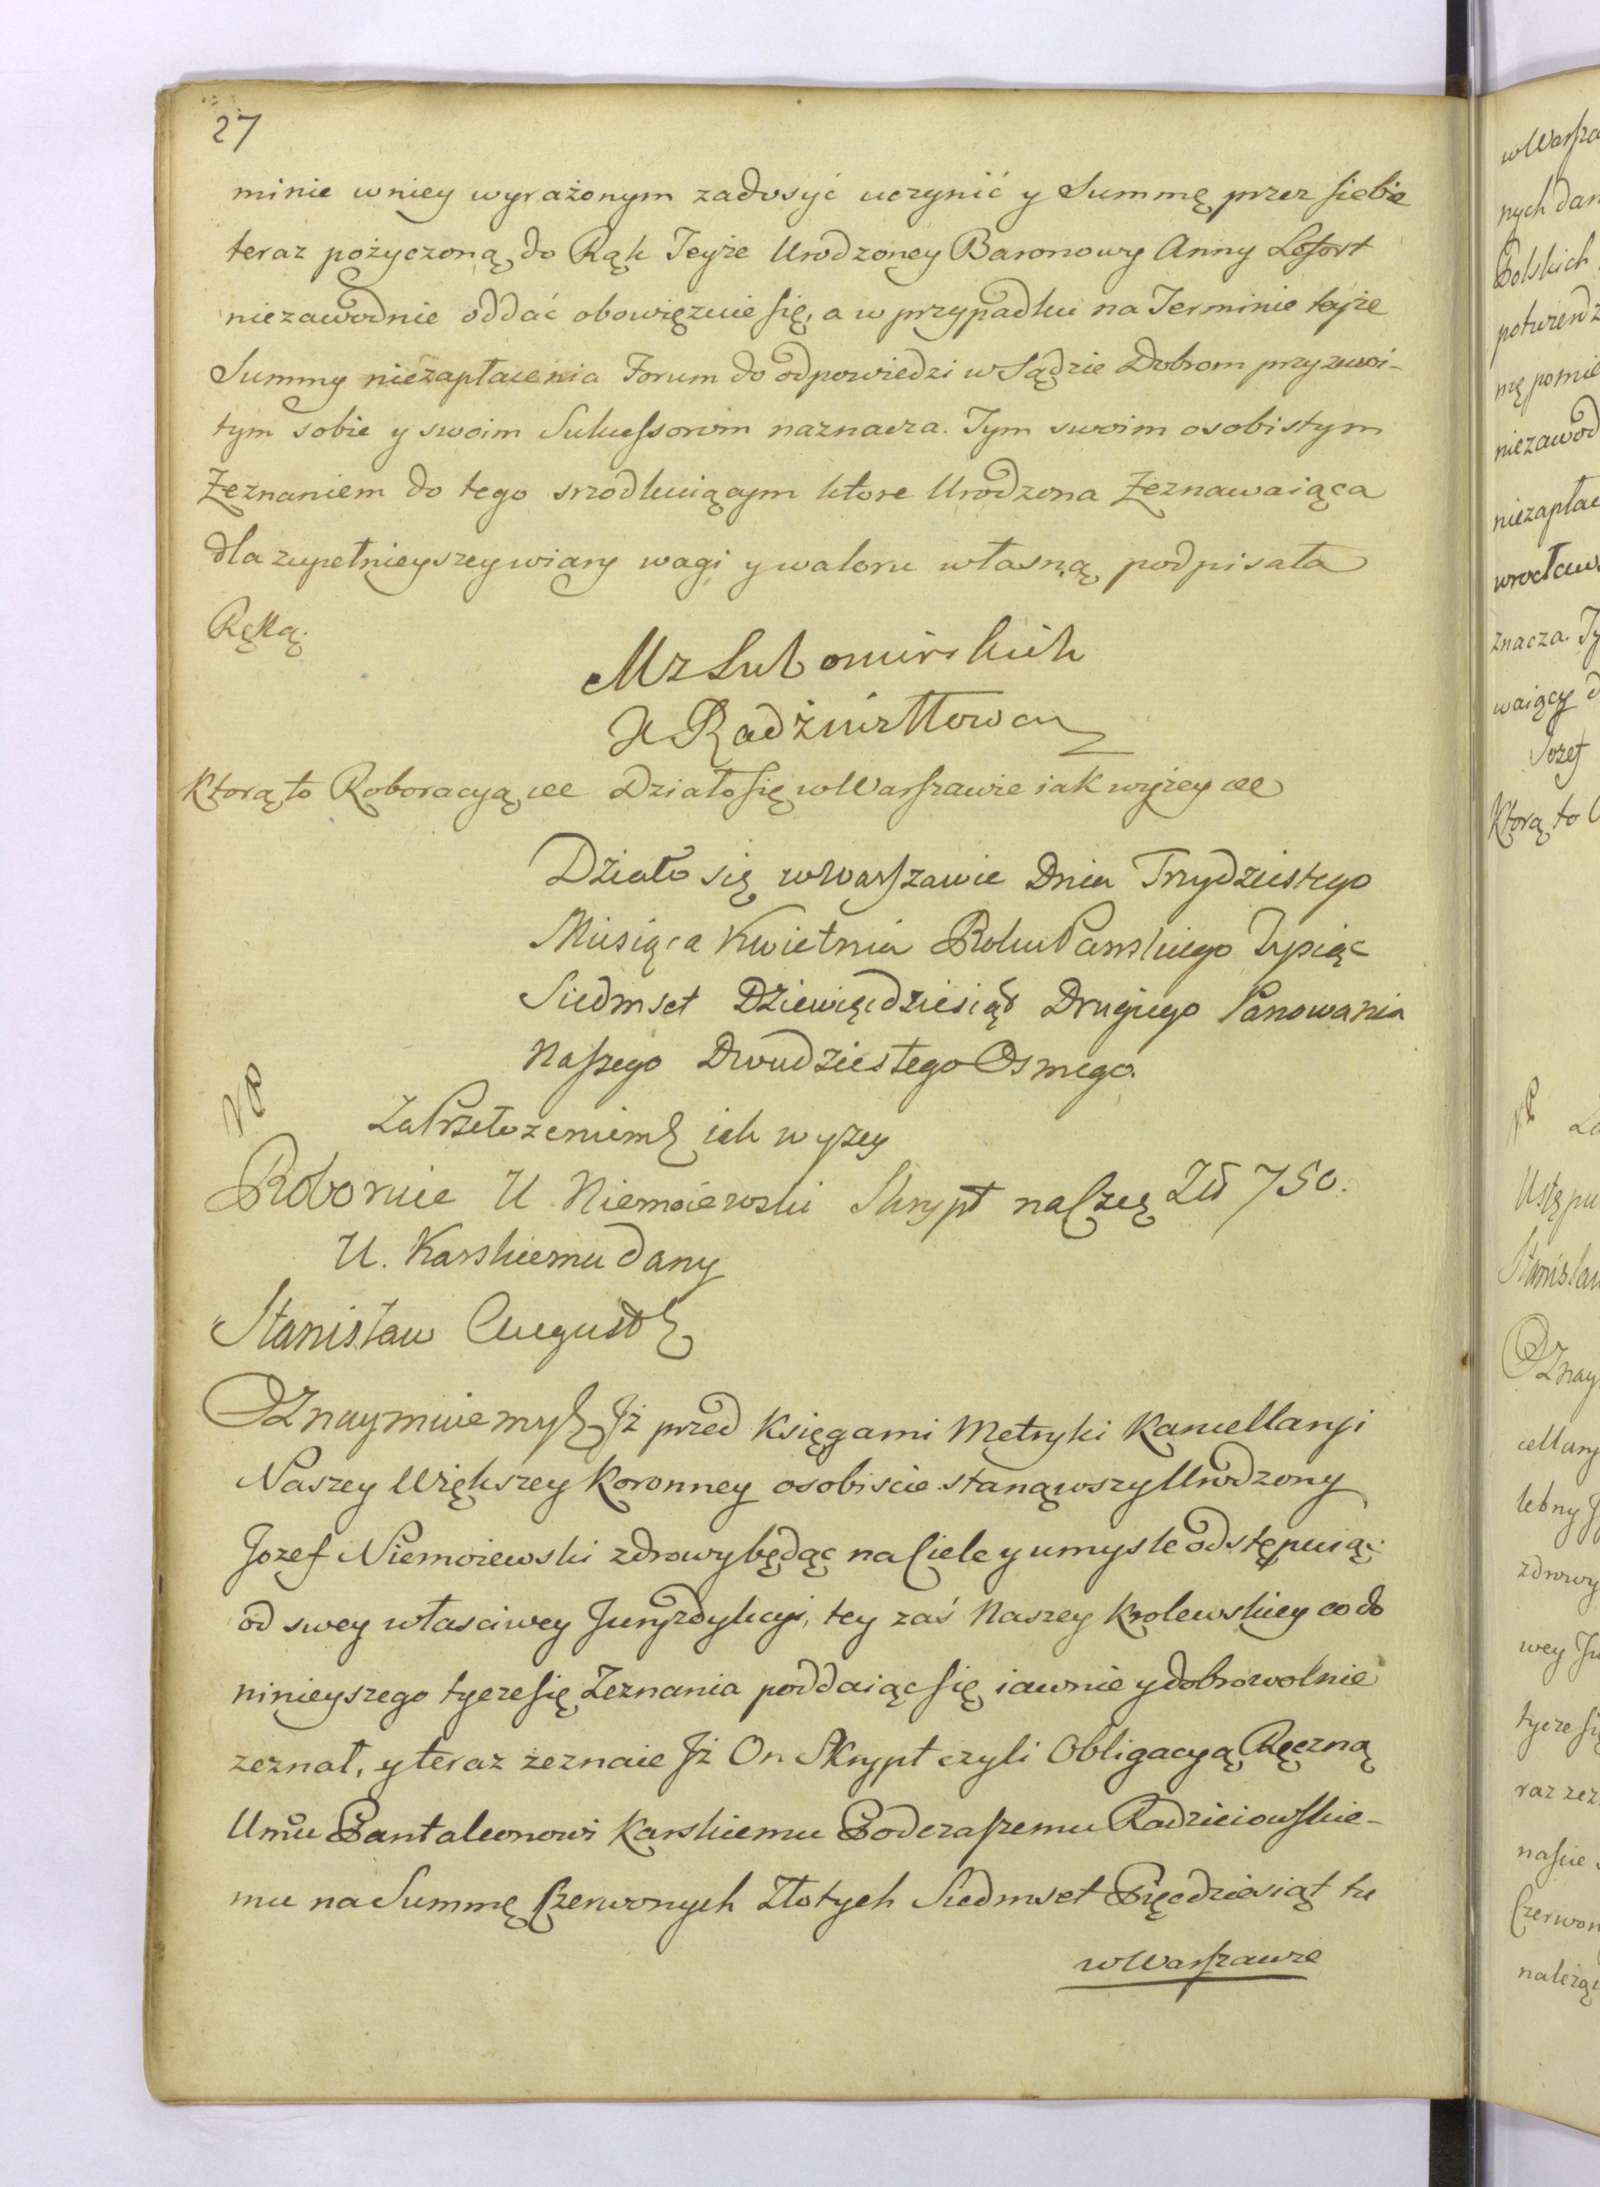 27
minie w niey wyrażonym zadosyć uczynić y Summę przez siebie
teraz pożyczoną do Rąk Teyże Urodzoney Baronowy Anny Lefort
niezawodnie oddać obowięzuie się, a w przypadku na Terminie teyże
Summy niezapłacenia Forum do odpowiedzi w Sądzie Dobrom przyzwoi-
tym sobie y swoim Sukcessorom naznacza. Tym swoim osobistym
Zeznaniem do tego srzodkuiącym ktore Urodzona Zeznawaiąca
dla zupełnieyszey wiary wagi y waloru własną podpisała
Ręką.
M z Lubomirskich
X Radziwiłłowa
Ktorą to Roboracyą etc Działo się w Warszawie iak wyżey etc
Działo się w Warszawie Dnia Trzydziestego
Miesiąca Kwietnia Roku Panskiego Tysiąc
Siedmset Dziewięćdziesiąt Drugiego Panowania
Naszego Dwudziestego Osmego.
Za Przełożeniem ich wyzey
Roboruie U. Niemoiewski Skrypt na Czer Zł 750.
U. Karskiemu dany
Stanisław August
Oznaymuiemy Jż przed Księgami Metryki Kancellaryi
Naszey Większey Koronney osobiscie stanąwszy Urodzony
Jozef Niemoiewski zdrowy będąc na Ciele y umysle odstępuiąc
od swey własciwey Juryzdykcyi, tey zaś Naszey Krolewskiey co do
ninieyszego tycze się Zeznania poddaiąc się iawnie y dobrowolnie
zeznał, y teraz zeznaie Jż On Skrypt czyli Obligacyą Ręczną
Urmu Pantaleonowi Karskiemu Podczaszemu Radzieiowskie-
mu na Summę Czerwonych Złotych Siedmset Pięcdziesiąt tu
w Warszawie